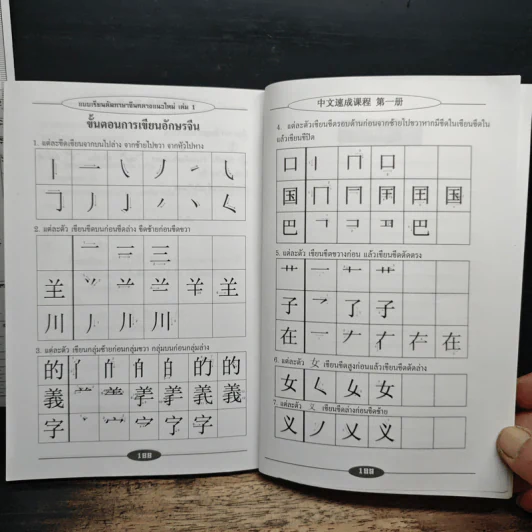 แบบเรียนลัดภาษาจีนกลางแนวใหม่ เล่ม 1
ขั้นตอนการเขียนอักษรจีน
1. แต่ละขีดเขียนจากบนไปล่าง จากซ้ายไปขวา จากหัวไปหาง
2. แต่ละตัว เขียนขีดบนก่อนขีดล่าง ขีดซ้ายก่อนขีดขวา
一 二 三
羊 羊
川 川 川
3. แต่ละตัว เขียนกลุ่มซ้ายก่อนกลุ่มขวา กลุ่มบนก่อนกลุ่มล่าง
的 的 的
義 義 義
字 字 字
中文速成课程 第一册
4. แต่ละตัวเขียนขีดรอบด้านก่อนจากซ้ายไปขวาหากมีขีดในเขียนขีดใน
แล้วเขียนขีปิด
口 丨 冂 口
国 丨 冂 国 国
巴 巴
5. แต่ละตัว เขียนขีดขวางก่อน แล้วเขียนขีดตัดตรง
艹 一 十 艹
子 了 子
在 一 ナ 在 在
6. แต่ละตัว 女 เขียนขีดสูงก่อนแล้วเขียนขีดตัดล่าง
女 く 女 女
7. แต่ละตัว 义 เขียนขีดล่างก่อนขีดซ้าย
义 ノ 乂 义